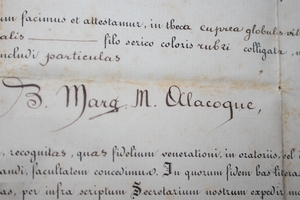 um facimus et attestamur, in theca cuprea globulis vit
alis ——— filo serico coloris rubri colligata,
ncludi particulas
B. Marg M. Alacoque,
, recognitas, quas fidelium venerationi, in oratoriis, sel
andi, facultatem concedimus. In quorum fidem has literas
as, per infra scriptum Secretarium nostrum expediri